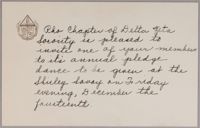 Rho Chapter of Delta Zeta
Sorority is pleased to
invite one of your members
to its annual pledge
dance to be given at the
Shirley Savoy on Friday
evening, December the
fourteenth